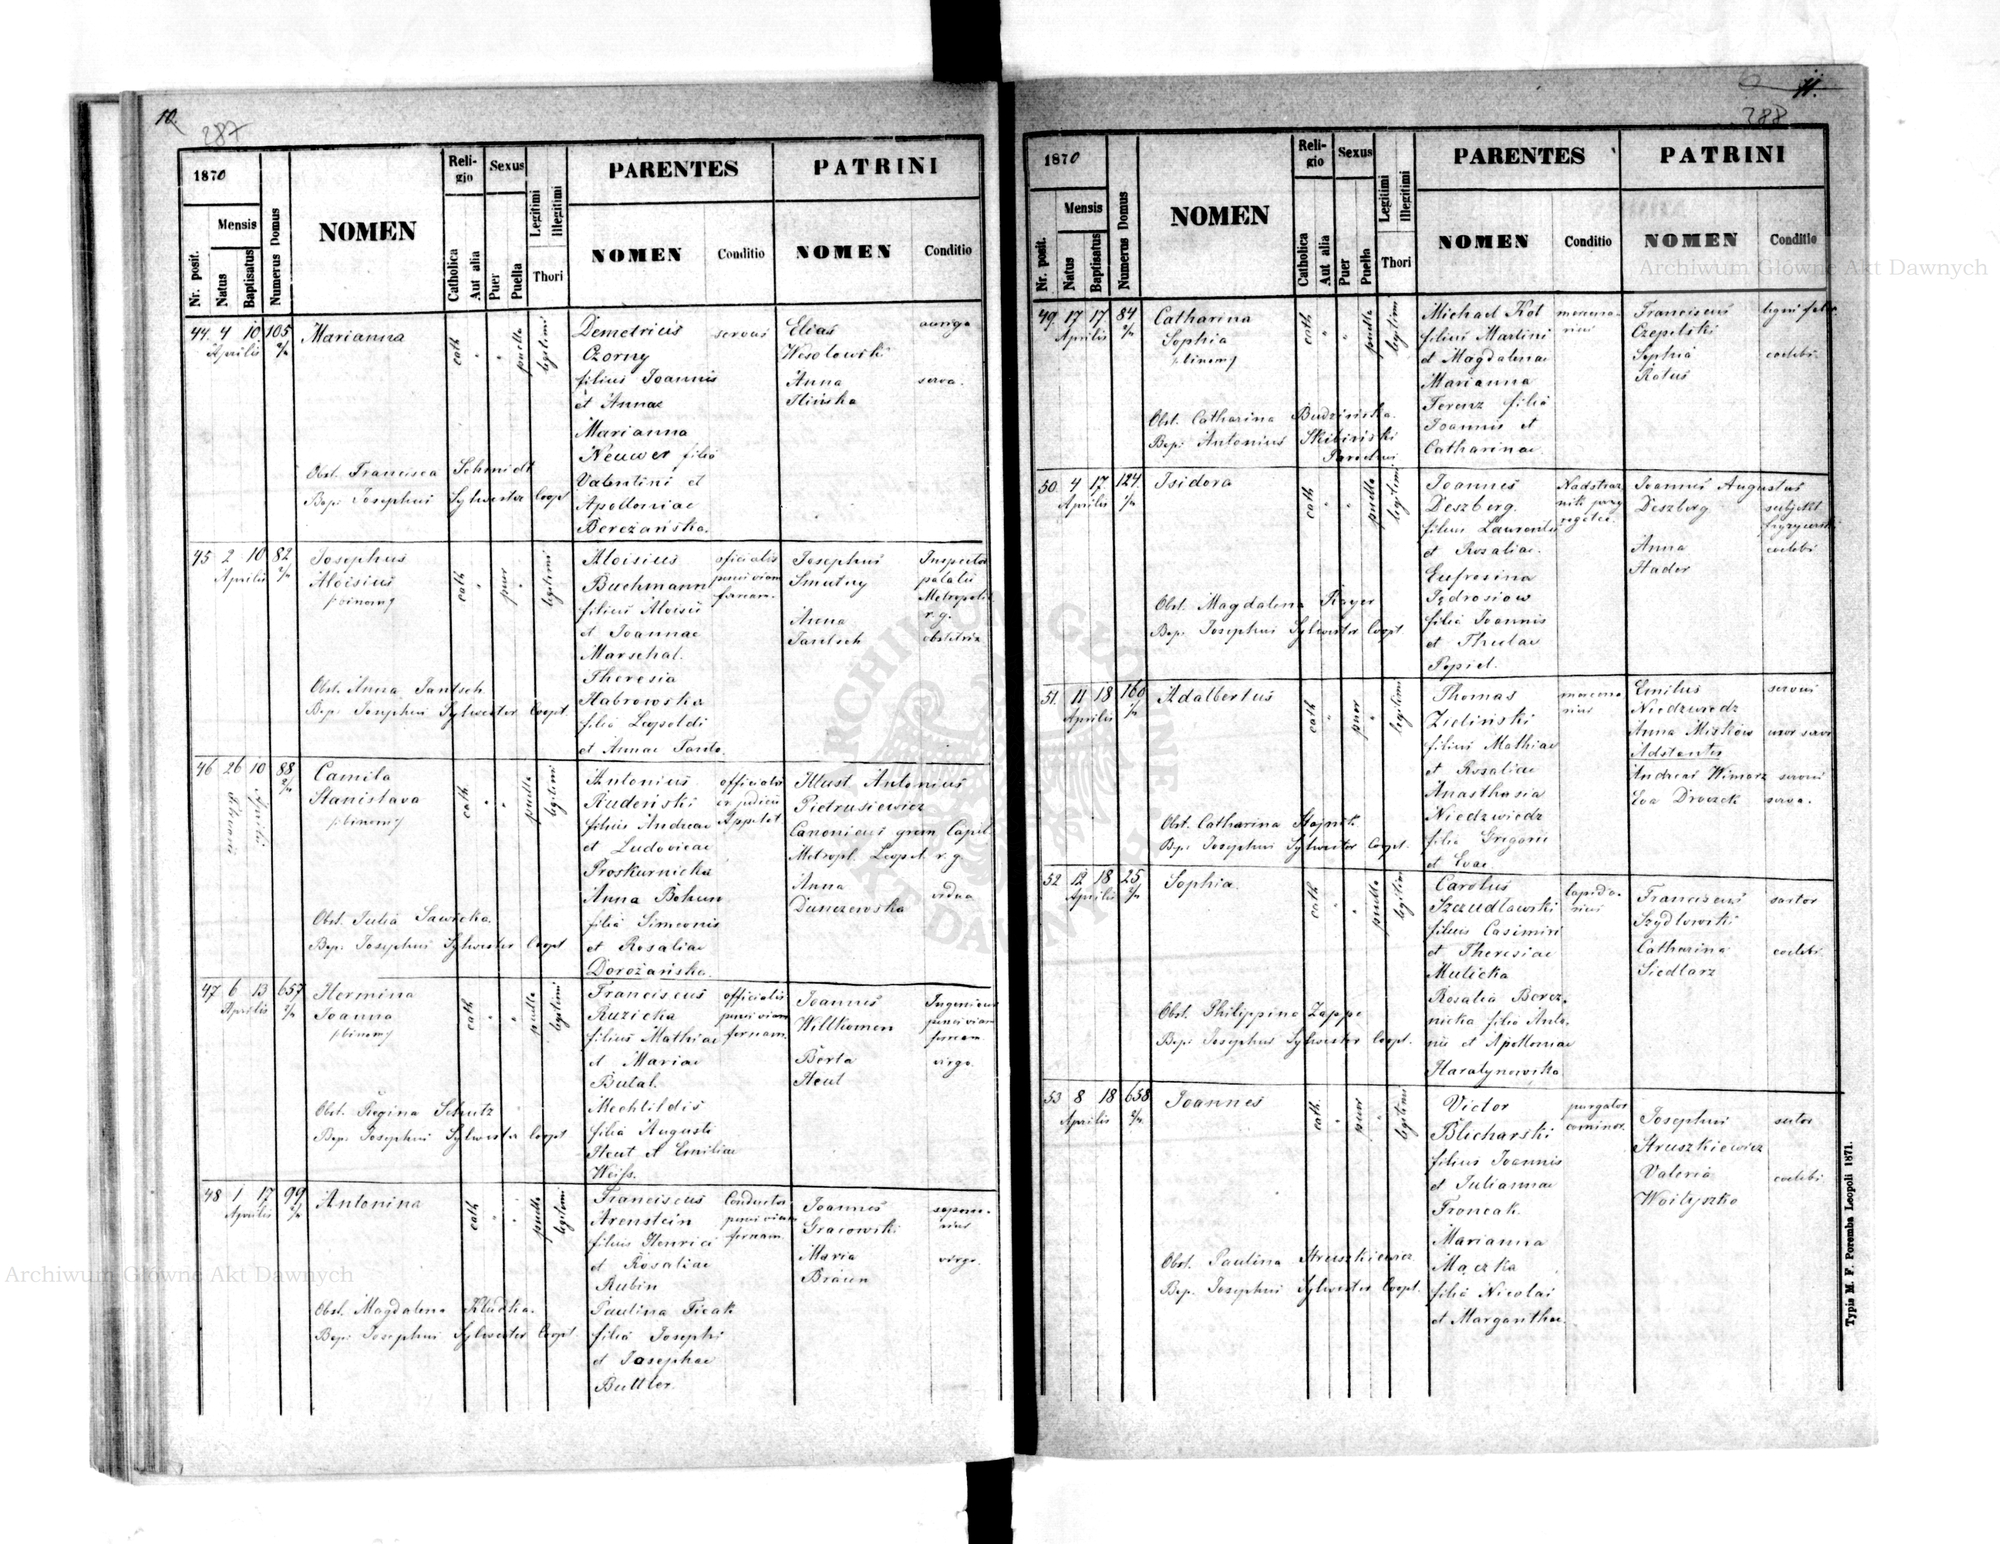 10.
287
1870
Mensis
Nr. posit.
Natus
Baptisatus
Numerus Domus
NOMEN
Religio
Catholica
Aut alia
Sexus
Puer
Puella
Legitimi
Illegitimi
Thori
PARENTES
NOMEN
Conditio
PATRINI
NOMEN
Conditio
44 4 10 105
Aprilis
Marianna
cath
puella
legitimi
Demetrius
Czorny
filius Joannis
et Annae
Marianna
Neuwer filia
Valentini et
Apolloniae
Berezańska.
servus
Elias
Wesołowski
Anna
Ilińska
auriga
serva.
Obst. Francisca Schmidt
Bap: Josephus Sylwester Coopt
45 2 10 82
Aprilis
Josephus
Aloisius
/:binom:/
cath
puer
legitimi
Aloisius
Buchmann
filius Aloisii
et Joannae
Marschal.
Theresia
Habrowska
filia Leopoldi
et Annae
oficialis
penes viam
ferream.
Josephus
Smutny
Anna
Jantsch
Inspector
palatii
Metropolit.
r. g.
obstetrix
Obst. Anna Jantsch
Bap: Josephus Sylwester Coopt.
46 26 10 88
Aprilis
Camila
Stanislava
/:binom:/
cath
puella
legitimi
Antonius
Rudeński
filius Andreae
et Ludovicae
Proskurnicka
Anna Bohun
filia Simeonis
et Rosaliae
Dorożańska.
officialis
Appelat.
Illust Antonius
Pietrusiewicz
Canonicus grem Capit
Metropl. Leopol. r. g.
Anna
Danczewska
vidua
Obst. Julia Sawicka.
Bap: Josephus Sylwester Coopt
47 6 13 657
Aprilis
Hermina
Joanna
/:binom:/
cath
puella
legitimi
Franciscus
Ruzicka
filius Mathiae
et Mariae
Butal.
Mechtildis
filia Augusti
Heut et Emiliae
Weiss.
officialis
penes viam
ferream.
Joannes
Willkomen
Berta
Heut
Ingenieur
penes viam
ferream
virgo.
Obst. Regina Schutz
Bap: Josephus Sylwester Coopt
48 1 17 99
Aprilis
Antonina
cath
puella
legitimi
Franciscus
Arenstein
filius Henrici
et Rosaliae
Rubin
Paulina Ficak
filia Josephi
et Josephae
Buttler.
Conductor
penes viam
ferream.
Joannes
Gracowski
Maria
Braun
virgo.
Obst. Magdalena Kludka.
Bap: Josephus Sylwester Coopt
11.
288
1870
Mensis
Nr. posit.
Natus
Baptisatus
Numerus Domus
NOMEN
Religio
Catholica
Aut alia
Sexus
Puer
Puella
Legitimi
Illegitimi
Thori
PARENTES
NOMEN
Conditio
PATRINI
NOMEN
Conditio
49. 17 17 84
Aprilis
Catharina
Sophia
/:binom:/
cath
puella
legitimi
Michael Kot
filius Martini
et Magdalenae
Marianna
Ferenz filia
Joannis et
Catharinae.
mercenarius
Franciscus
Czepelski
Sophia
Ratus
ligni faber
coelebs.
Obst. Catharina Budzińska.
Bap: Antonius Skibiński
Parochus
50. 4 17 124
Aprilis
Isidora
cath
puella
legitimi
Joannes
Deszberg.
filius Laurentii
et Rosaliae.
Eufrosina
Jędrosiow
filia Joannis
et Theclae
Popiel.
Nadstrażnik przy
rogatce.
Joannes Augustus
Deszberg
Anna
Hader
subjekt
fryzyerski
coelebs
Obst. Magdalena Kayer
Bap: Josephus Sylwester Coopt.
51. 11 18 160
Aprilis
Adalbertus
cath
puer
legitimi
Thomas
Zieliński
filius Mathiae
et Rosaliae
Anasthasia
Niedzwiedz
filia Gregorii
et Evae
mercenarius
Emilus
Niedzwiedz
Anna Miśkow
Adstantes
Andreas Wimarz
Eva Droczek
servus
uxor servi
servus
serva.
Obst. Catharina Hajnik
Bap: Josephus Sylwester Coopt.
52 12 18 25
Aprilis
Sophia.
cath
puella
legitimi
Carolus
Szczudlawski
filius Casimiri
et Theresiae
Mulicka
Rosalia Bereznicka filia Antonii et Apolloniae
Haratynowska
lapidarius
Franciscus
Szydłowski
Catharina
Siedlarz
sartor
coelebs.
Obst. Philippina Zappe
Bap: Josephus Sylwester Coopt.
53 8 18 658
Aprilis
Joannes
cath.
puer
legitimi
Victor
Blicharski
filius Joannis
et Juliannae
Froncak.
Marianna
Mączka
filia Nicolai
et Margarithae.
purgator
caminor.
Josephus
Struszkiewicz
Valeria
Woityszko
sutor
coelebs
Obst. Paulina Struszkiewicz
Bap. Josephus Sylwester Coopt.
Typis M. F. Poremba Leopoli 1871.
Archiwum Główne Akt Dawnych
Archiwum Główne Akt Dawnych
ARCHIWUM GŁÓWNE AKT DAWNYCH